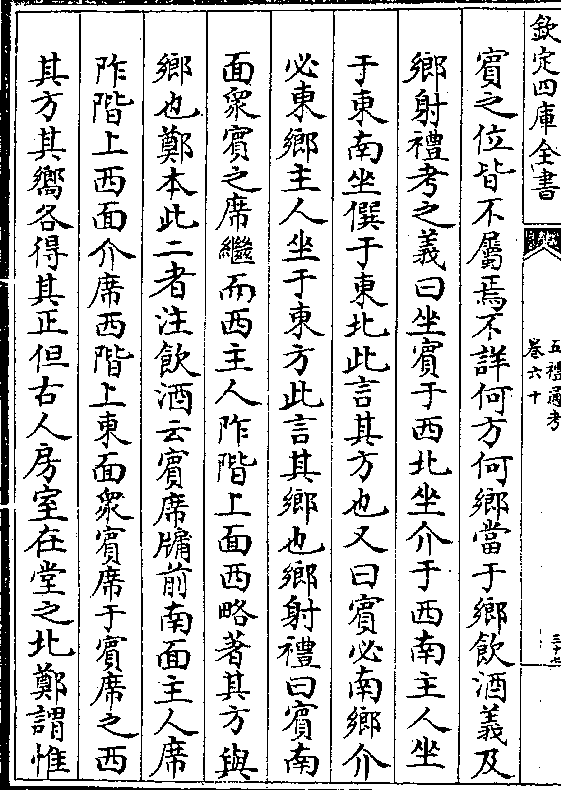 欽定四庫全書
五禮通考
卷六十
三十七
賓之位皆不屬焉不詳何方何鄉當于鄉飲酒義及
鄉射禮考之義曰坐賓于西北坐介于西南主人坐
于東南坐僎于東北此言其方也又曰賓必南鄉介
必東鄉主人坐于東方此言其鄉也鄉射禮曰賓南
面衆賓之席繼而西主人阼階上面西略著其方與
鄉也鄭本此二者注飲酒云賓席牖前南面主人席
阼階上西面介席西階上東面衆賓席于賓席之西
其方其嚮各得其正但古人房室在堂之北鄭謂惟